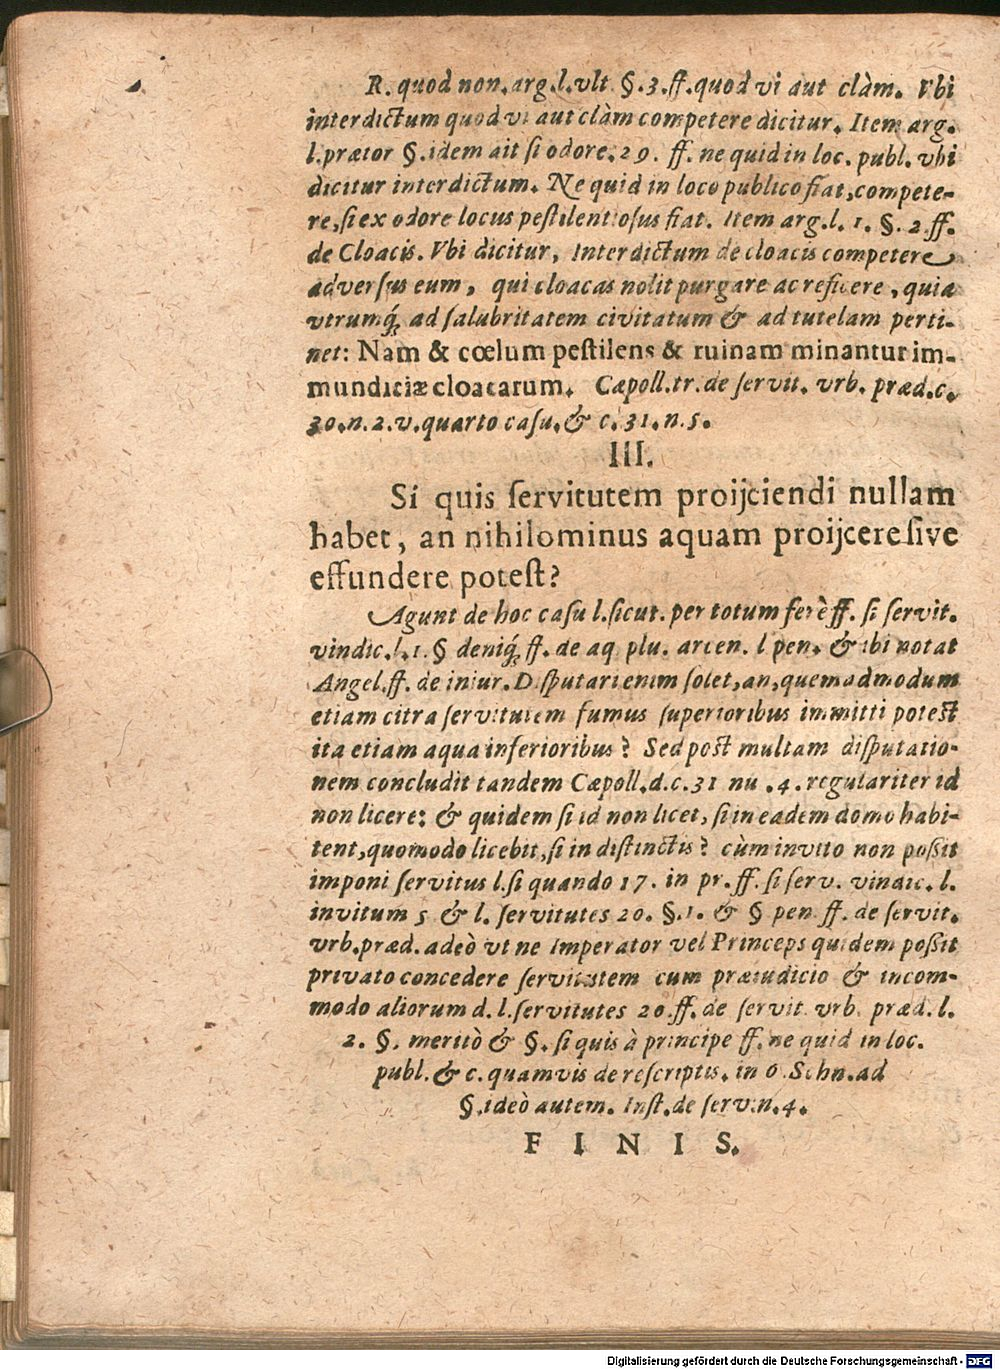 R. quod non. arg. l. vlt §. 3. ff. quod vi aut clàm. Vbi
interdictum quod vi aut clàm competere dicitur. Item arg.
l. prætor §. idem ait si odore. 29. ff. ne quid in loc. publ. vbi
dicitur interdictum. Ne quid in loco publico fiat, compete-
re, si ex odore locus pestilentiosus fiat. Item arg. l. 1. §. 2. ff.
de Cloacis. Vbi dicitur, Interdictum de cloacis competere
adversus eum, qui cloacas nolit purgare ac reficere, quia
vtrumq́; ad salubritatem civitatum & ad tutelam perti-
net: Nam & cœlum pestilens & ruinam minantur im-
mundiciæ cloacarum. Cæpoll. tr. de servit. vrb. præd. c.
30. n. 2. v. quarto casu. & c. 31. n. 5.
III.
Si quis servitutem proijciendi nullam
habet, an nihilominus aquam proijcere sive
effundere potest?
Agunt de hoc casu l. sicut. per totum ferè ff. si servit.
vindic. l. 1. § deniq́; ff. de aq. plu. arcen. l pen. & ibi notat
Angel. ff. de iniur. Disputari enim solet, an, quemadmodum
etiam citra servitutem fumus superioribus immitti potest
ita etiam aqua inferioribus? Sed post multam disputatio-
nem concludit tandem Cæpoll. d. c. 31 nu. 4. regulariter id
non licere: & quidem si id non licet, si in eadem domo habi-
tent, quomodo licebit, si in distinctis? cùm invito non possit
imponi servitus l. si quando 17. in pr. ff. si serv. vindic. l.
invitum 5 & l. servitutes 20. §. 1. & § pen ff. de servit.
vrb. præd. adeò vt ne Imperator vel Princeps quidem possit
privato concedere servitutem cum præiudicio & incom-
modo aliorum d. l. servitutes 20. ff. de servit vrb. præd. l.
2. §. meritò & §. si quis à principe ff. ne quid in loc.
publ. & c. quamvis de rescriptis. in 6. Schn. ad
§. ideò autem. Inst. de serv. n. 4.
FINIS.
Digitalisierung gefördert durch die Deutsche Forschungsgemeinschaft - DFG